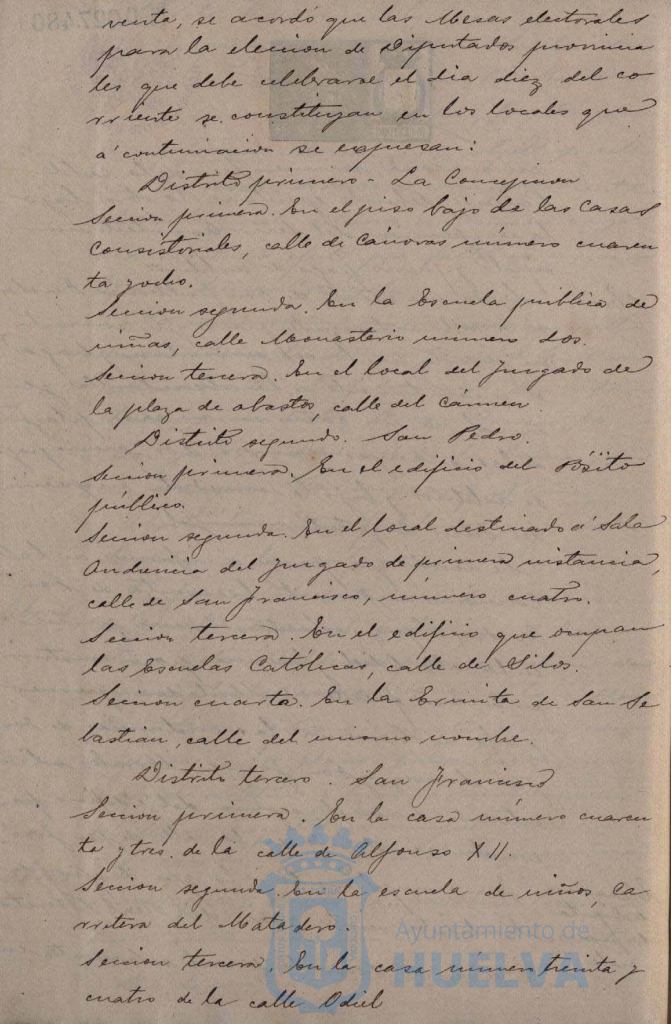 venta, se acordó que las Mesas electorales
para la eleccion de Diputados provincia
les que debe celebrarse el dia diez del co
rriente se constituyan en los locales que
á continuacion se expresan:
Distrito primero - La Concepcion
Seccion primera. En el piso bajo de las Casas
Consistoriales, calle de Cánovas número cuaren
ta y ocho.
Seccion segunda. En la Escuela publica de
niñas, calle Monasterio número dos.
Seccion tercera. En el local del Juzgado de
la plaza de abastos, calle del Cármen
Distrito segundo. San Pedro.
Seccion primera. En el edificio del Pósito
público.
Seccion segunda. En el local destinado á Sala
Audiencia del Juzgado de primera instancia,
calle de San Francisco, número cuatro.
Seccion tercera. En el edificio que ocupan
las Escuelas Católicas, calle de Silos.
Seccion cuarta. En la Ermita de San Se
bastian, calle del mismo nombre.
Distrito tercero. San Francisco
Seccion primera. En la casa número cuaren
ta y tres de la calle de Alfonso XII.
Seccion segunda. En la escuela de niños, Ca-
rretera del Matadero.
Seccion tercera. En la casa número treinta y
cuatro de la calle Odiel
Ayuntamiento de
HUELVA